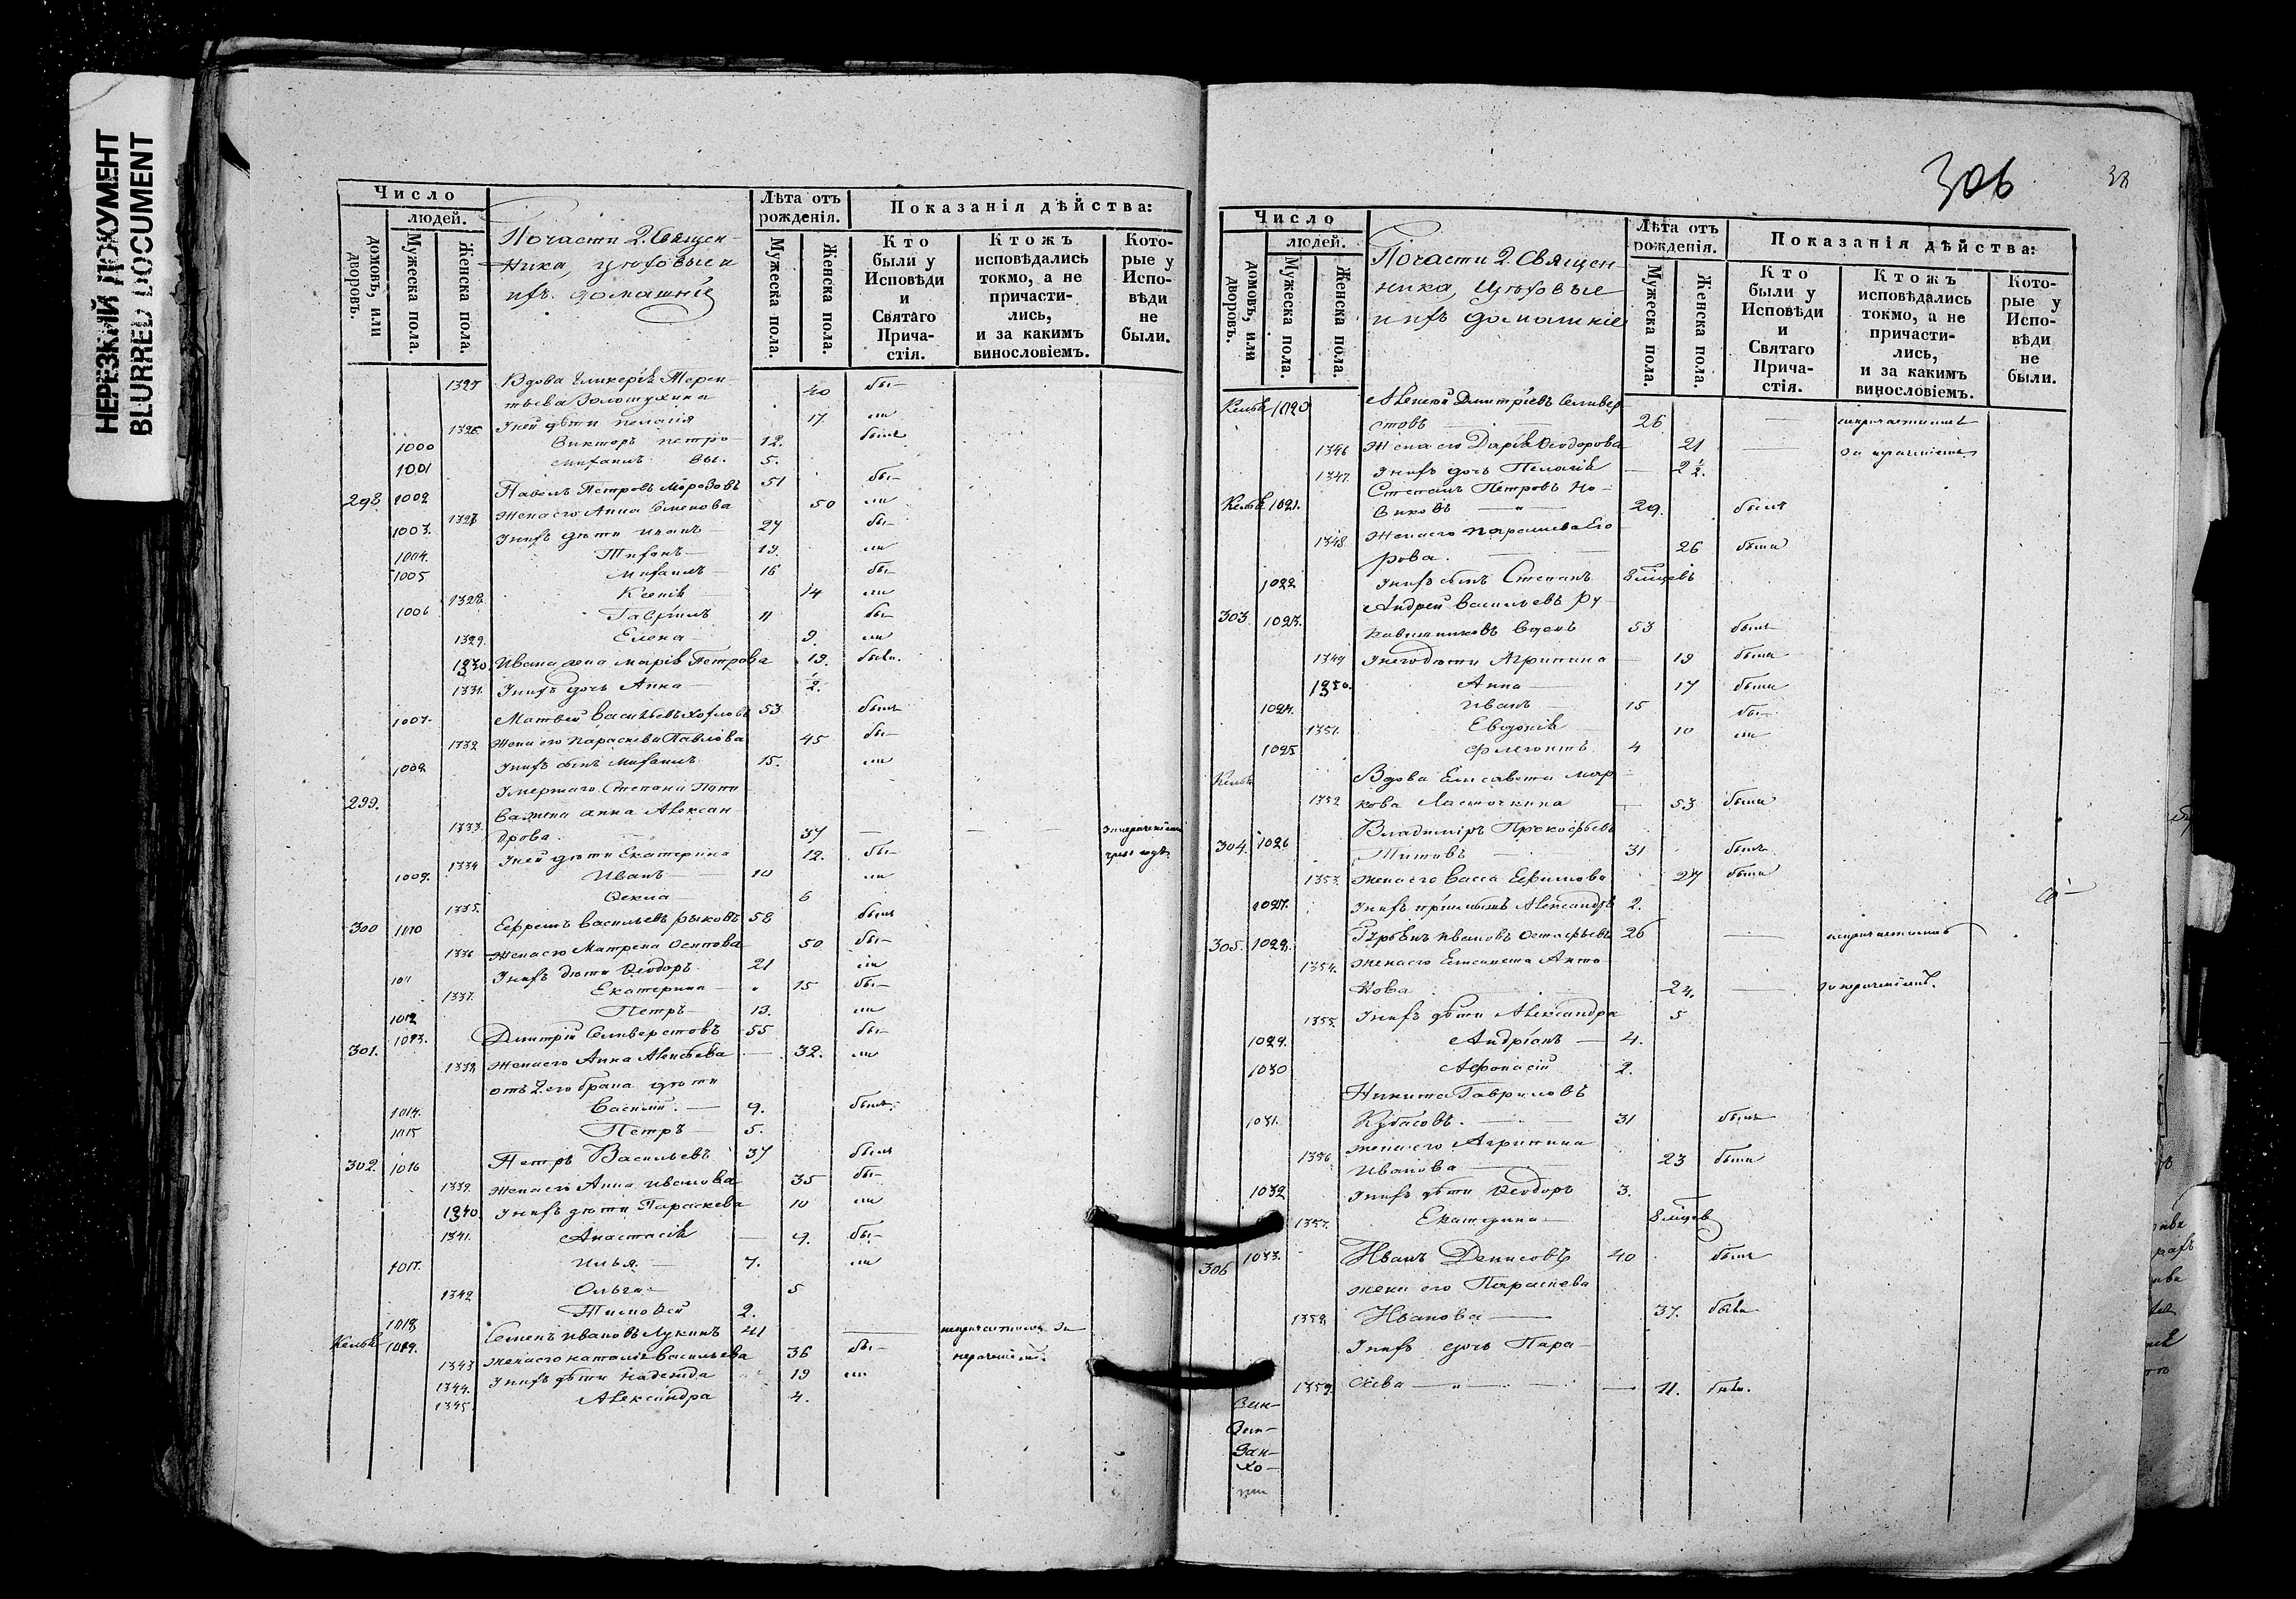 НЕРЕЗКИЙ ДОКУМЕНТ
BLURRED DOCUMENT
Число
людей.
домовъ, или дворовъ.
Мужеска пола.
Женска пола.
По части 2. Священ-
ника, цеховые и
ихъ домашніе
Лѣта отъ рожденія.
Мужеска пола.
Женска пола.
Показанія дѣйства:
Кто были у Исповѣди и Святаго Прича-стія.
Ктожъ исповѣдались токмо, а не причасти-лись, и за какимъ винословіемъ.
Кото-рые у Испо-вѣди не были.
1325 Вдова Гликерія Терен-
тьева Золотухина 40 бы-
1326 У ней дѣти Пелагія 17 ли
1000 Викторъ Петро- 12. былъ
1001 Михаилъ вы. 5.
298 1002 Павелъ Петровъ Морозовъ 51 бы-
1327 Жена его Анна Семенова 50 ли
1003. У нихъ дѣти Иванъ 27 бы-
1004. Тихонъ 19. ли
1005 Михаилъ 16 бы-
1328 Ксенія 14 ли
1006 Гавріилъ 11 бы-
1329. Елена 9. ли
1330. Ивана жена Марія Петрова 19. была.
1331. У нихъ дочь Анна ½.
1007. Матвей Васильевъ Хохловъ 53 былъ
1332 Жена его Параскева Павлова 45 бы-
1008 У нихъ сынъ Михаилъ 15. ли
299. Умершаго Степана
1333. жена Анна Алексан
дрова 37 — —
1334 У ней дѣти Екатерина 12. бы-
1009. Иванъ 10 ли
1335. Ѳекла 6
300 1010 Ефремъ Васильевъ Рыковъ 58 былъ
1336 Жена его Матрена Осипова 50 бы-
1011 У нихъ дѣти Ѳеодоръ 21 ли
1337. Екатерина 15 бы-
1012 Петръ 13. ли
301. 1013. Дмитрій Селиверстовъ 55 бы-
1338 Жена его Анна Алексѣева 32. ли
отъ 2. его брака дѣти
1014. Василій. 9. былъ.
1015 Петръ 5.
302. 1016 Петръ Васильевъ 37 былъ
1339. Жена его Анна Иванова 35 бы-
1340. У нихъ дѣти Параскева 10 ли
1341. Анастасія 9. бы-
1017. Илья 7. ли
1342 Ольга 5
1018 Тимоѳей 2.
Келья 1019. Семенъ Ивановъ Лукинъ 41 — непричастился за
1343 Жена его Наталія Васильева 36 бы- нераченіемъ.
1344. У нихъ дѣти Надежда 19 ли
1345. Александра 4.
306
38
Число
людей.
домовъ, или дворовъ.
Мужеска пола.
Женска пола.
По части 2. Священ-
ника, Цеховые
и ихъ домашніе
Лѣта отъ рожденія.
Мужеска пола.
Женска пола.
Показанія дѣйства:
Кто были у Исповѣди и Святаго Прича-стія.
Ктожъ исповѣдались токмо, а не причасти-лись, и за какимъ винословіемъ.
Кото-рые у Испо-вѣди не были.
Келья 1020 Алексѣй Дмитріевъ Селивер
стовъ 26 —
1346 Жена его Дарія Ѳеодорова 21 —
1347. У нихъ дочь Пелагія 2½.
Келья 1021. Степанъ Петровъ Но-
виковъ 29. былъ
1348. Жена его Параскева Его
рова. 26 была
1022 У нихъ сынъ Степанъ 8 мѣсцевъ
303. 1023. Андрей Васильевъ Ру-
кавишниковъ вдовъ 53 былъ
1349 У него дѣти Агрипина 19 была
1350. Анна 17 была
1024. Иванъ 15 бы-
1351. Евдокія 10 ли
1025 Флегонтъ 4
Келья Вдова Елисавета Мар
1352 кова Ласточкина 53 была
304. 1026 Владиміръ Прокофьевъ
Титовъ 31 былъ
1353. Жена его Васса Ефимова 27 была
1027. У нихъ Александръ 2.
305. 1028. Ивановъ Остафьевъ 26 —
1354. Жена его Елисавета Анто
нова 24. —
1355. У нихъ дѣти Александра 5
1029. Андріанъ 4.
1030 Афонасій 2.
Никита Гавриловъ
1031. Кубасовъ. 31 былъ
1356. жена его Агрипина
Иванова 23 была
1032 У нихъ дѣти Ѳеодоръ 3.
1357. Екатерина 8 мѣсцев
306 1033. Иванъ Денисовъ 40 былъ
жена его Параскева
1358. Иванова 37. была
У нихъ дочь Пара-
1359. скева 11. была.